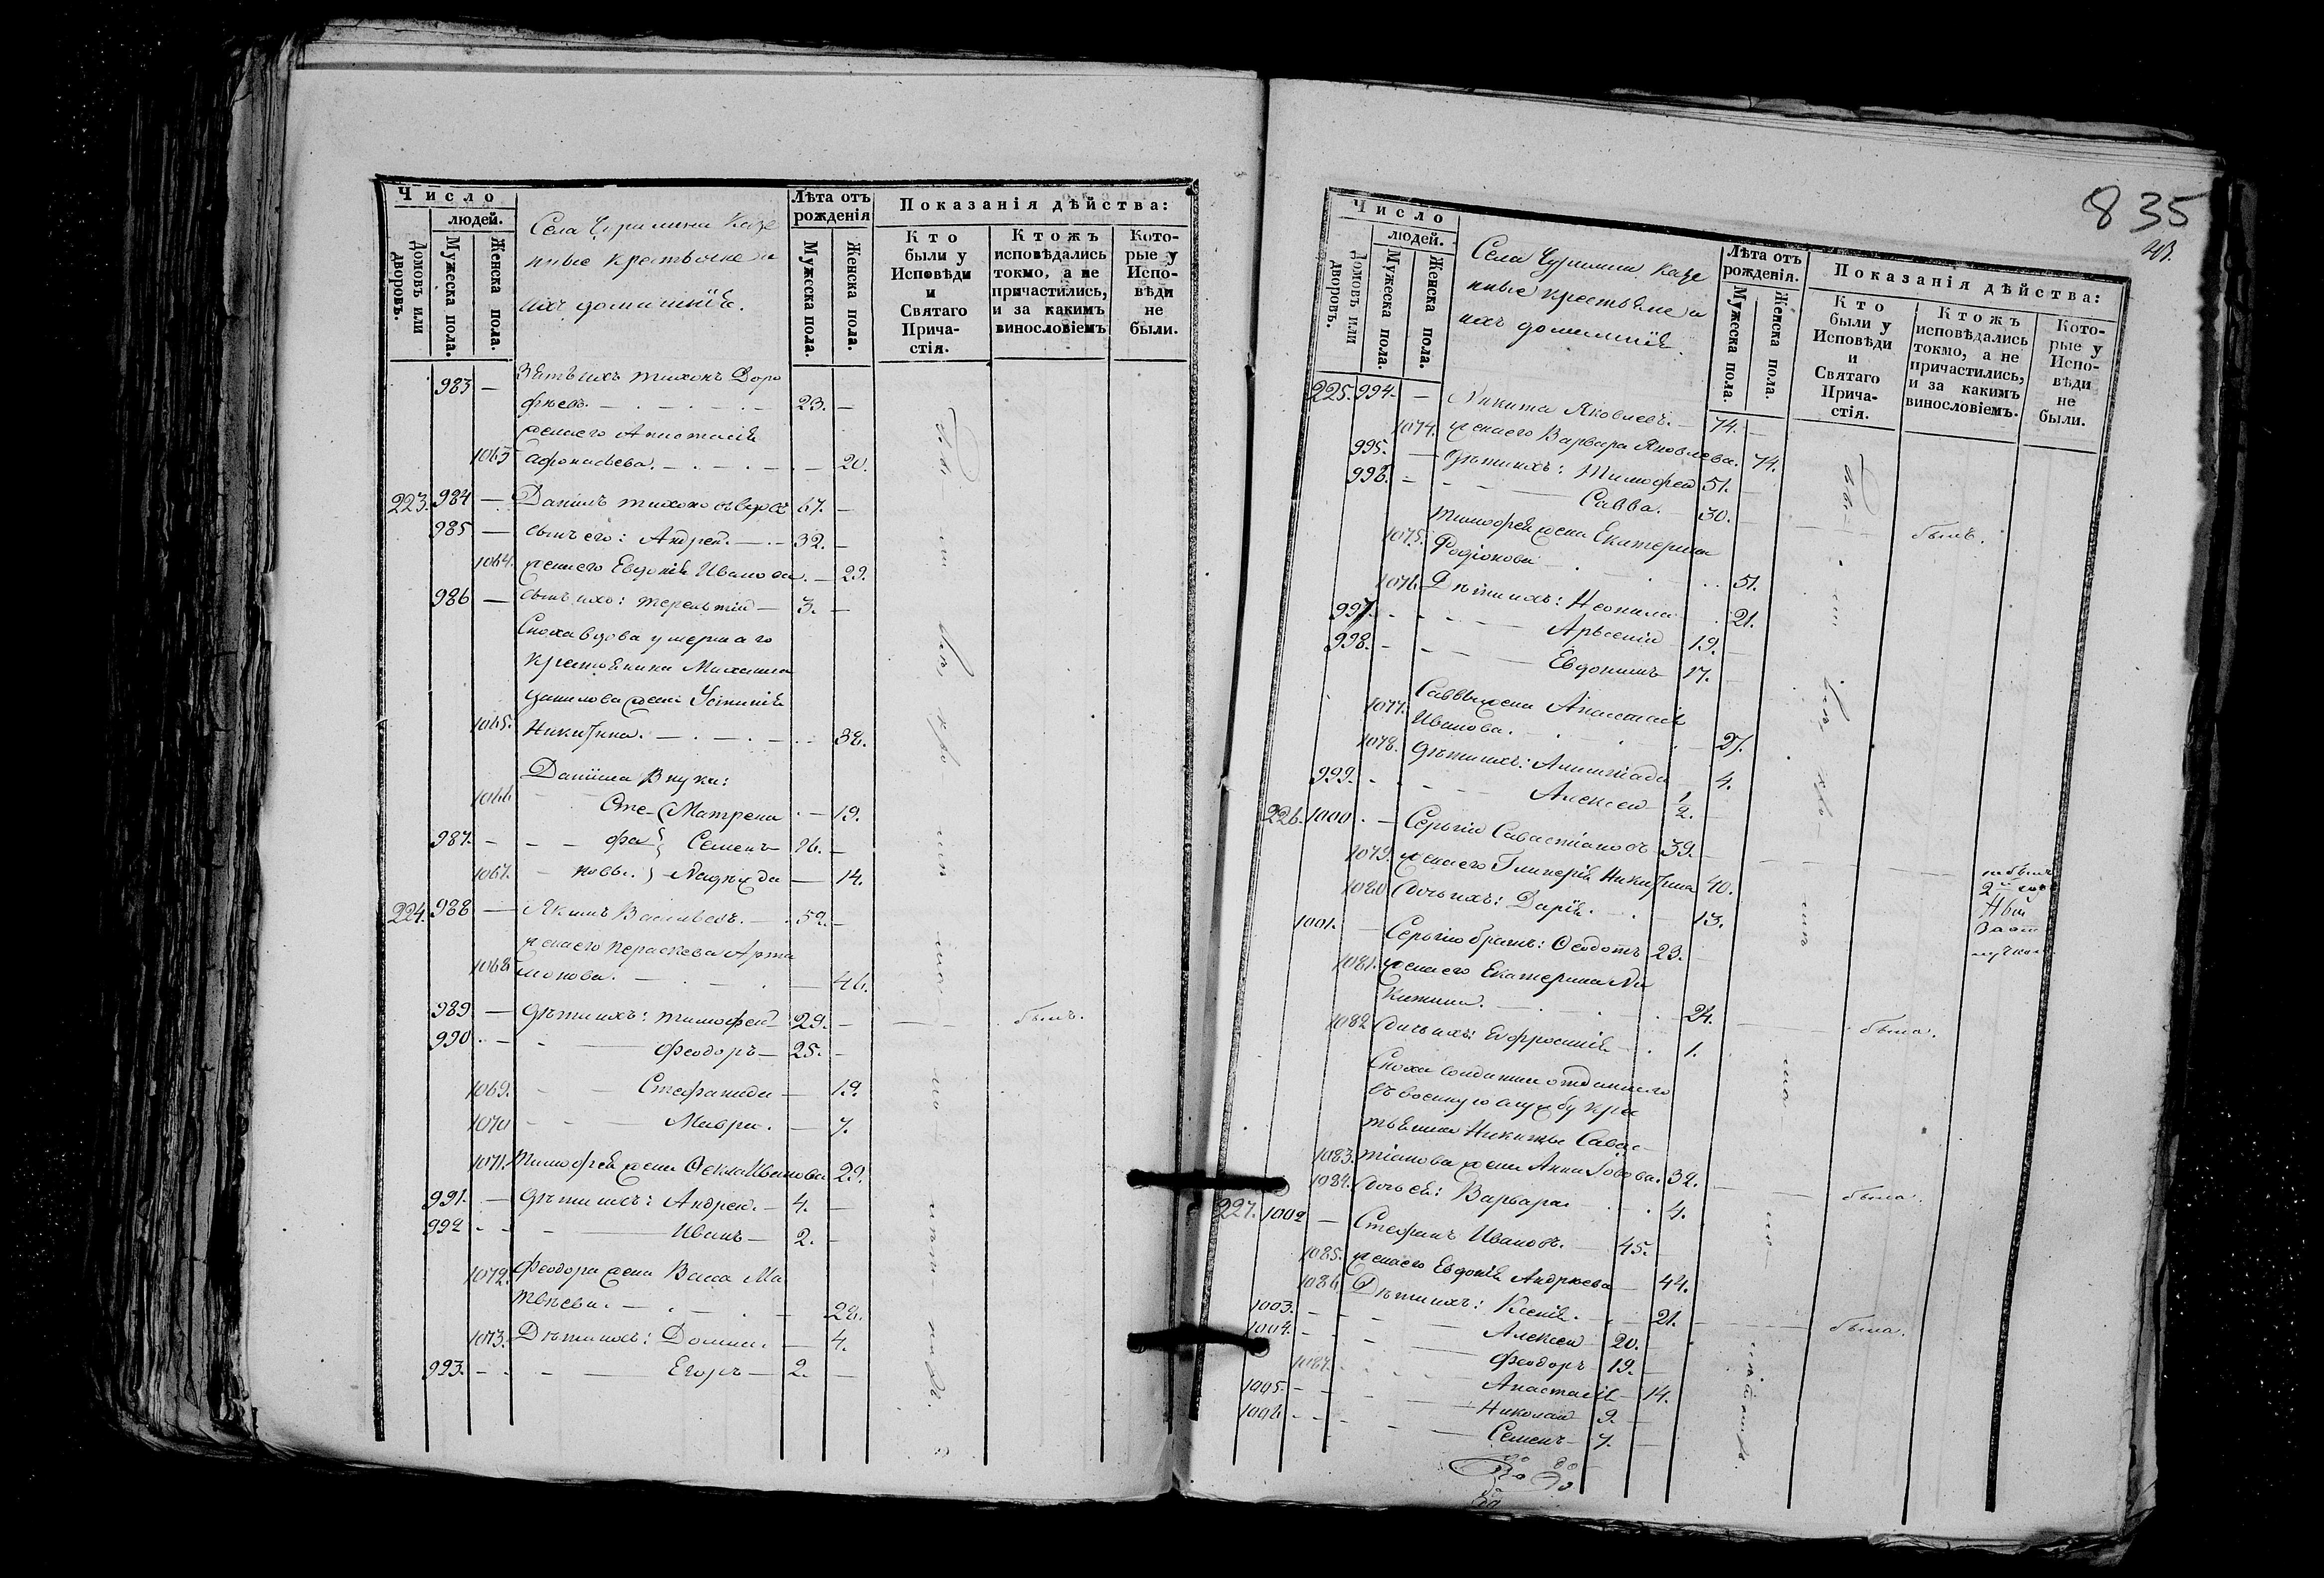 Число
людей.
Домовъ или дворовъ.
Мужеска пола.
Женска пола.
Села Чурилина Казе
нные крестьяне и
ихъ домашнiе.
Лѣта отъ рожденія
Мужеска пола.
Женска пола.
Показанія дѣйства:
Кто были у Исповѣди и Святаго Прича-стія.
Ктожъ исповѣдались токмо, а не причастились, и за какимъ винословіемъ
Кото-рые у Испо-вѣди не были.
983 — Зять ихъ Тихонъ Доро
фѣевъ. 23. —
жена его Анастасія
1063 Афонасьева. — 20.
223. 984 — Данiилъ Тихоновъ вдовъ 67. —
985 — сынъ его: Андрей. 32. —
1064. жена его Евдокія Иванова. — 29.
986 — сынъ ихъ: Терентій — 3. —
Сноха вдова умершаго
крестьянина Михаила
Данилова жена Устинія
1065. Никитина. — 38.
Данiила внуки:
1066 Сте- Матрена — 19.
987. — фа Семенъ 16. —
1067. — новы. Надежда — 14.
224. 988 — Якимъ Васильевъ. 59. —
жена его Параскева Арта
1068 монова. — 46.
989 — дѣти ихъ: Тимофей — 29. — былъ.
990. — Феодоръ — 25. —
1069. Стефанида — 19.
1070 Мавра. — 7.
1071. Тимофея жена Ѳекла Иванова 29.
991. — дѣти ихъ: Андрей. — 4. —
992 — Иванъ — 2. —
1072. Феодора жена Васса Ма
твѣева. — 28.
1073. Дѣти ихъ: Домна. — 4.
993. — Егоръ — 2. —
835
Число
людей.
Домовъ или дворовъ.
Мужеска пола.
Женска пола.
Села Чурилина казе
нные крестьяне и
ихъ домашнiе.
Лѣта отъ рожденія.
Мужеска пола.
Женска пола.
Показанія дѣйства:
Кто были у Исповѣди и Святаго Прича-стія.
Ктожъ исповѣдались токмо, а не причастились, и за какимъ винословіемъ.
Кото-рые у Испо-вѣди не были.
225. 994. — Никита Яковлевъ. — 74. —
1074. жена его Варвара Яковлева. 74.
995. — дѣти ихъ: Тимофей 51. —
996. — Савва. — 30. — былъ.
Тимофея жена Екатерина
1075. Родіонова 51.
1076. Дѣти ихъ: Неонила 21.
997. — Арьсеній 19. —
998. — Евдокимъ 17. —
Саввы жена Анастасія
1077. Иванова. 27.
1078. дѣти ихъ: Алимпіада 4.
999. — Алексей 1/2. —
226. 1000. — Серьгій Савастіановъ 39. —
1079. жена его Гликерія Никитина 40.
1080 дочь ихъ: Дарія. 13.
1001. — Серьгію братъ: Ѳеодотъ 23. —
1081. жена его Екатерина Ни
китина. 24. была.
1082 дочь ихъ: Евфросинія 1.
Сноха солдатка отданнаго
въ военную службу крес
тьянина Никиты Савас
1083. тіанова жена Анна 32. была.
1084. дочь ея: Варвара 4.
227. 1002 — Стефанъ Ивановъ. 45. —
1085. жена его Евдокія Андрѣева 44.
1086. Дѣти ихъ: Ксенія. 21. была.
1003. — Алексей 20. —
1004. — Феодоръ 19. —
1087. Анастасія — 14.
1005. — Николай 9. —
1006. — Семенъ 7. —